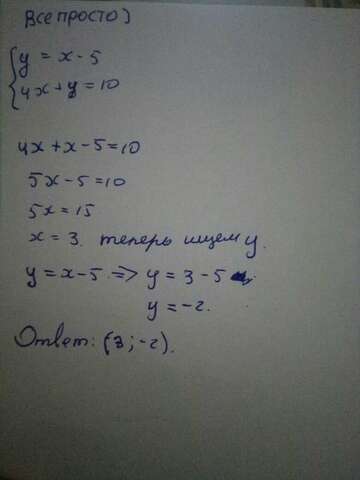 Все просто)
y = x - 5
4x + y = 10
4x + x - 5 = 10
5x - 5 = 10
5x = 15
x = 3. теперь ищем y.
y = x - 5 => y = 3 - 5
y = -2.
Ответ: (3; -2).